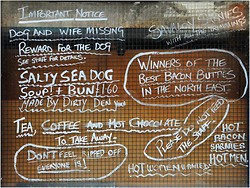 IMPORTANT NOTICE
DOG AND WIFE MISSING
REWARD FOR THE DOG
SEE STAFF FOR DETAILS.
SALTY SEA DOG
SOUP! + BUN! 1.60
MADE BY DIRTY DEN
WINNERS OF THE
BEST BACON BUTTIES
IN THE NORTH EAST.
TEA, COFFEE AND HOT CHOCOLATE
TO TAKE AWAY.
PLEASE DO NOT FEED
THE STAFF
DON'T FEEL RIPPED OFF
EVERYONE IS!
HOT
BACON
SARNIES
HOT MEN
HOT WOMEN